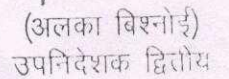 (अलका बिश्नोई)
उपनिदेशक द्वितीय